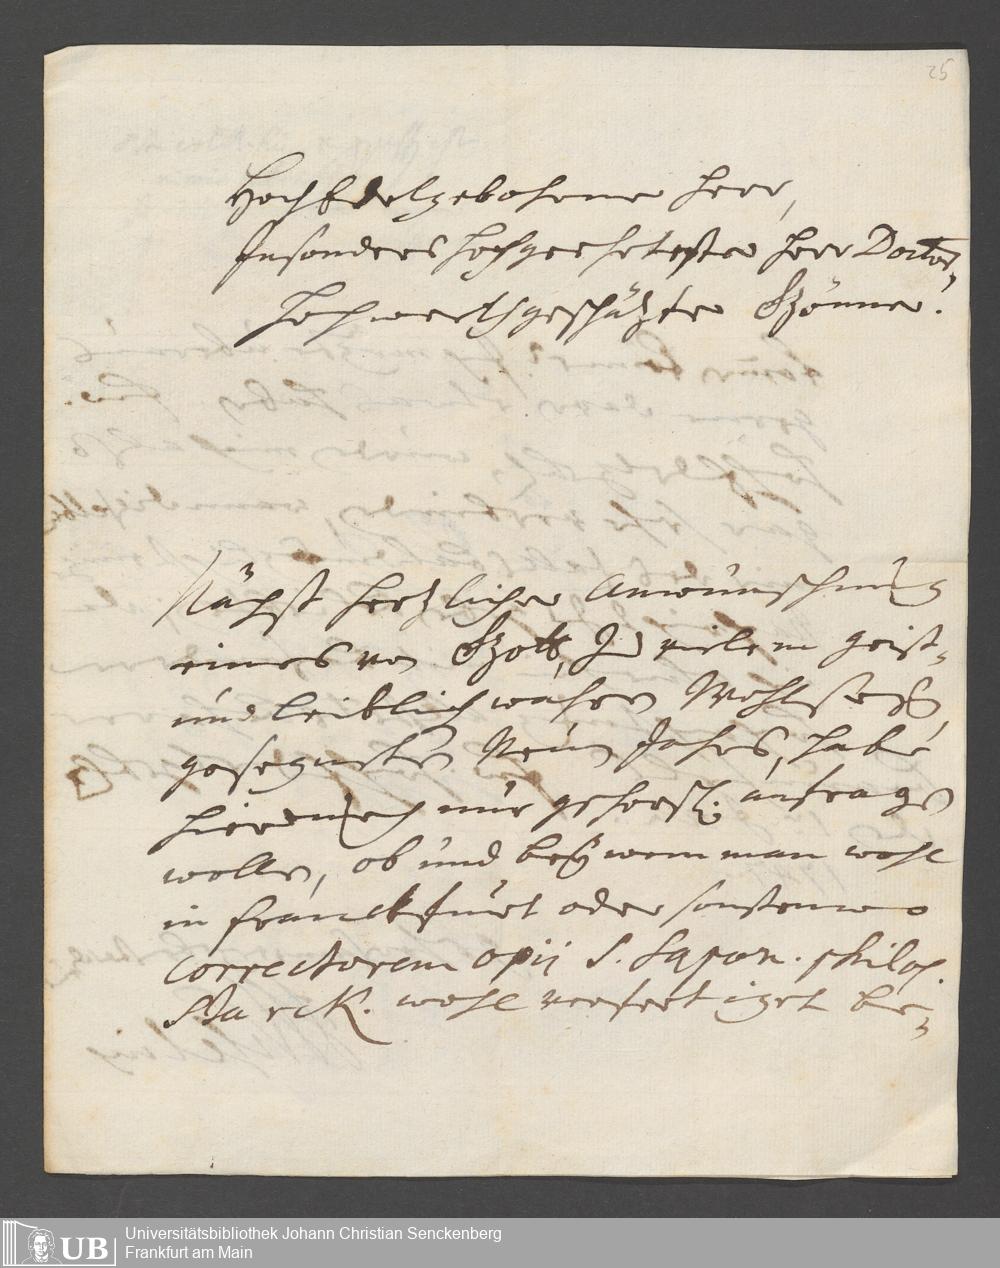 25
HochEdelgebohrner Herr,
Insonders Hochgeehrtester Herr Doctor,
Hochwerthgeschätzter Gönner.
Nächst hertzlicher Anwünschung
eines von Gott, In vielem geist-
und leiblich wahren Wohlseyn,
gesegneten Neuen Jahres, habe
hierdurch nur gehorsl. anfragen
wollen, ob und bey wem man wohl
in Franckfurt oder sonsten wo
correctorem opii s. Sapon. philos.
Starck. wohl verfertiget be-
Universitätsbibliothek Johann Christian Senckenberg
Frankfurt am Main
UB